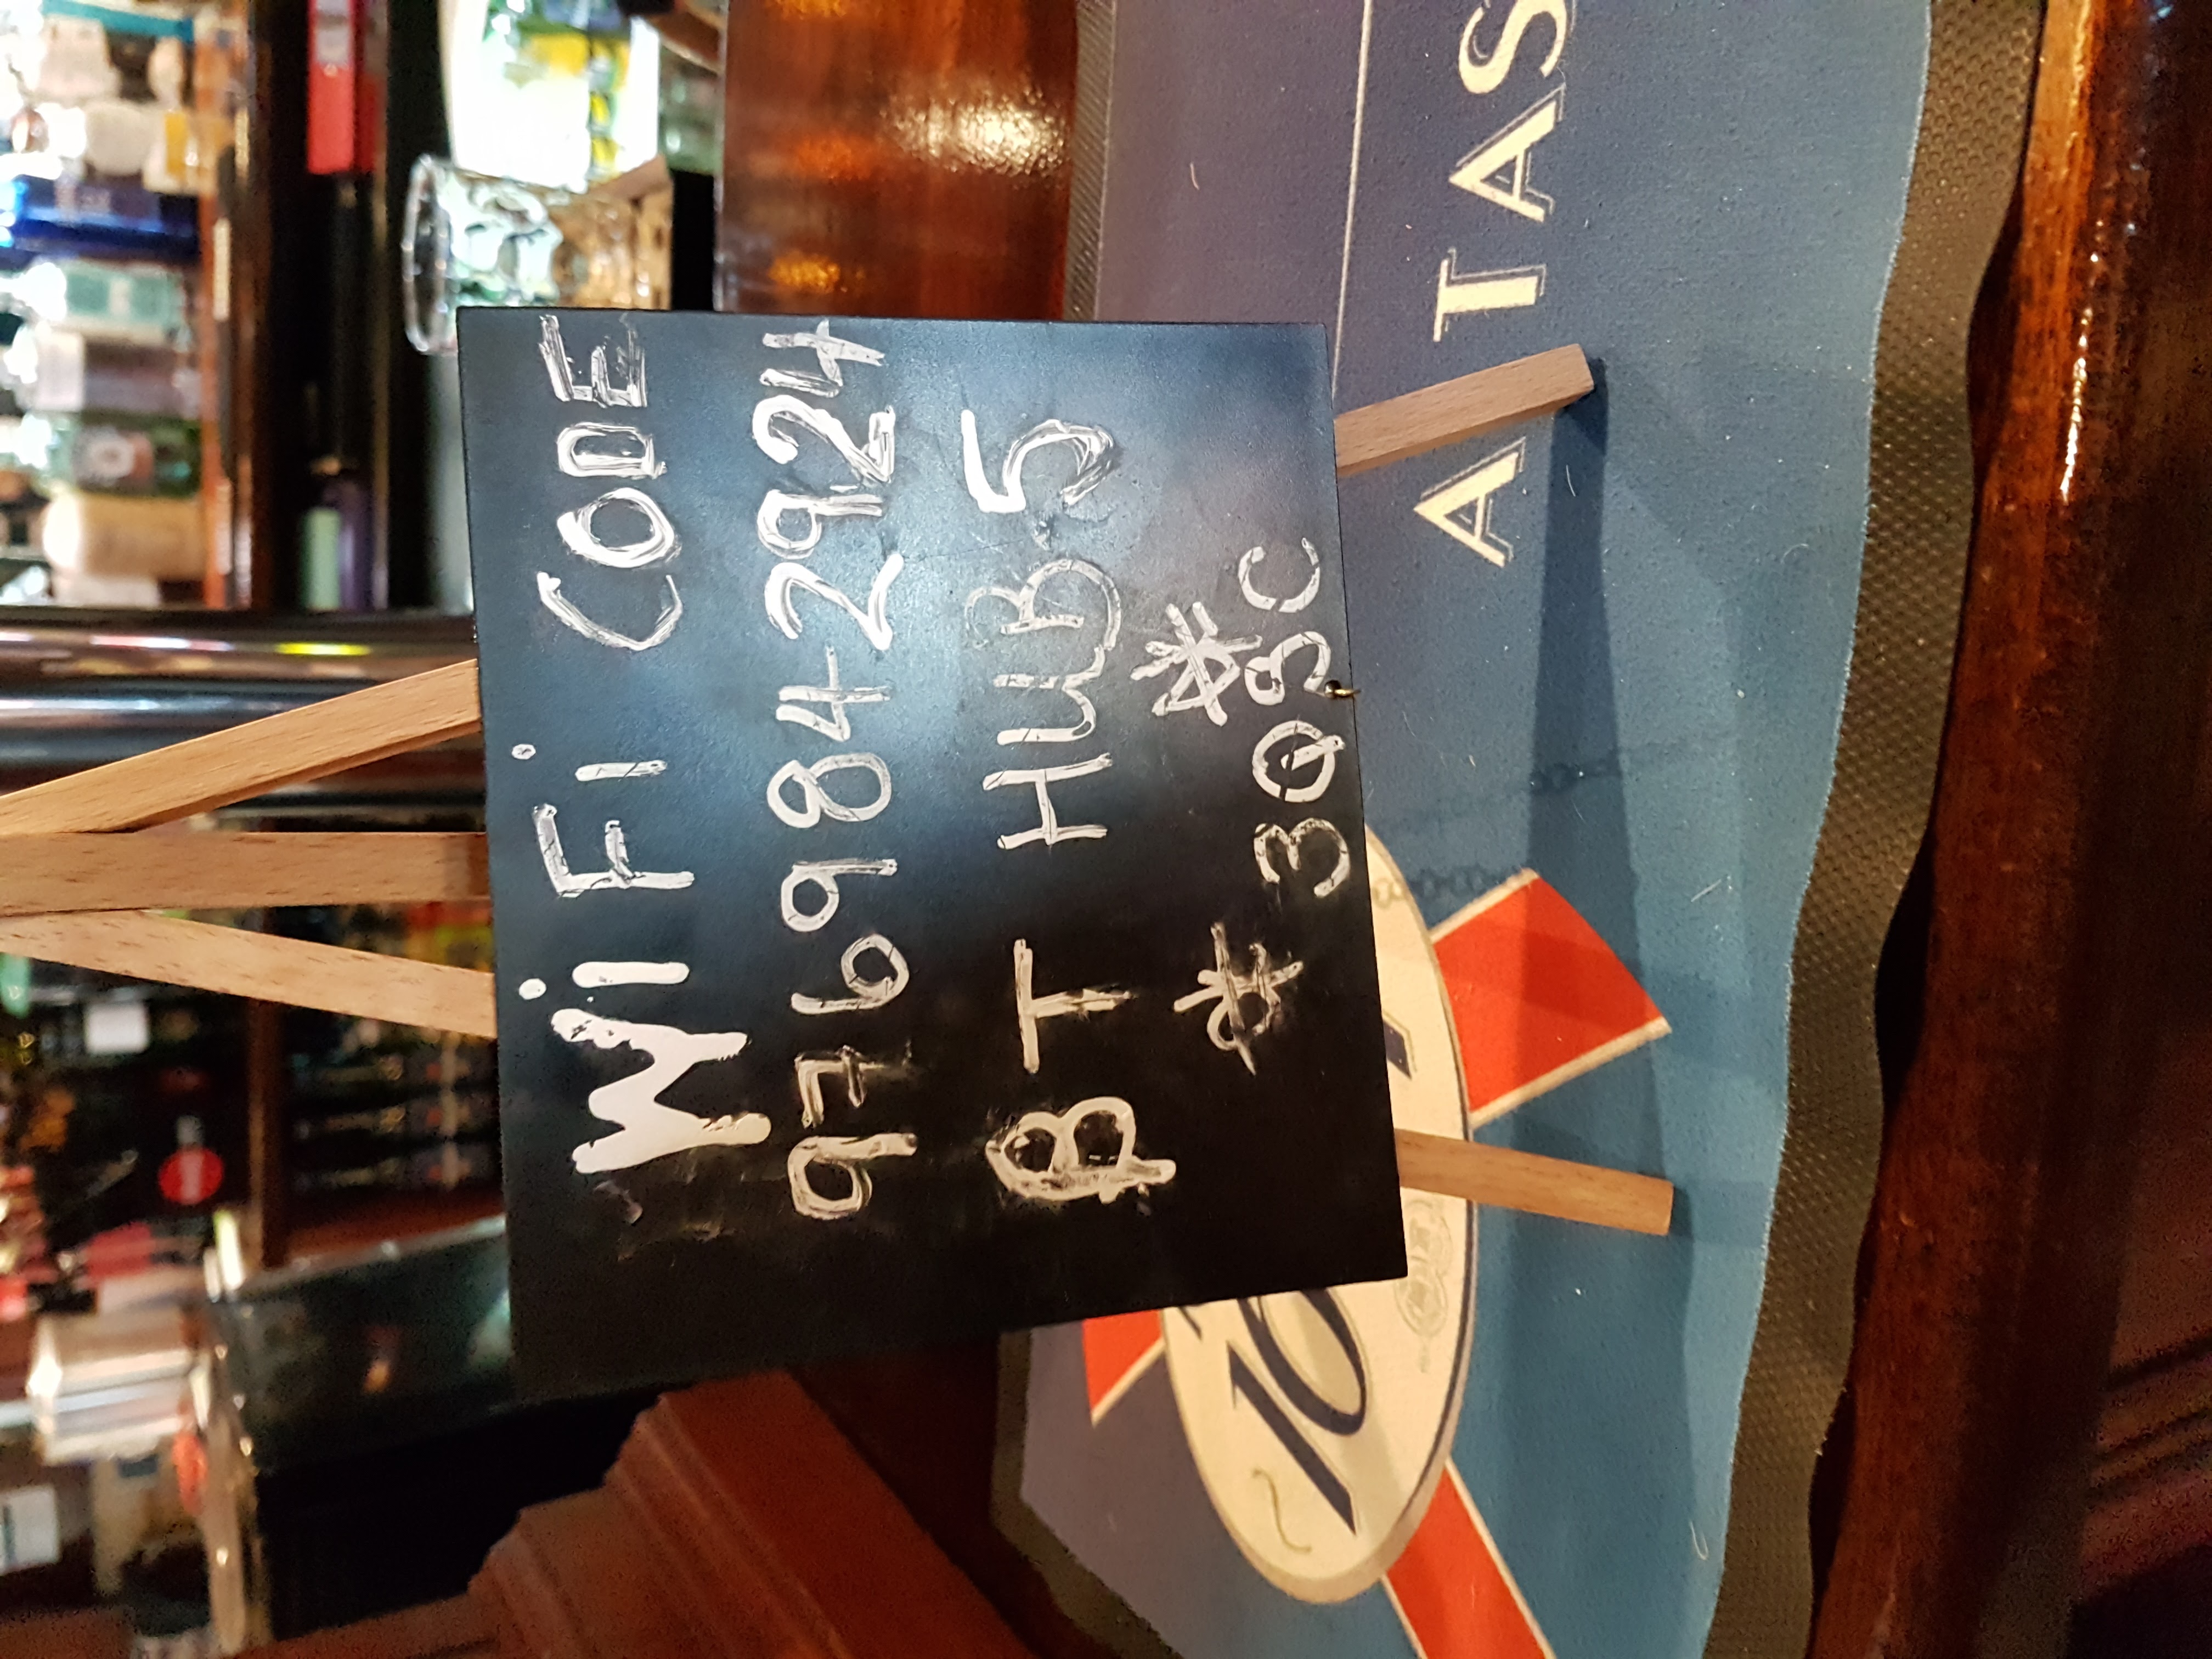 WiFi CODE
9769842924
BT HUB5
* *
3QSC
10
A TAS